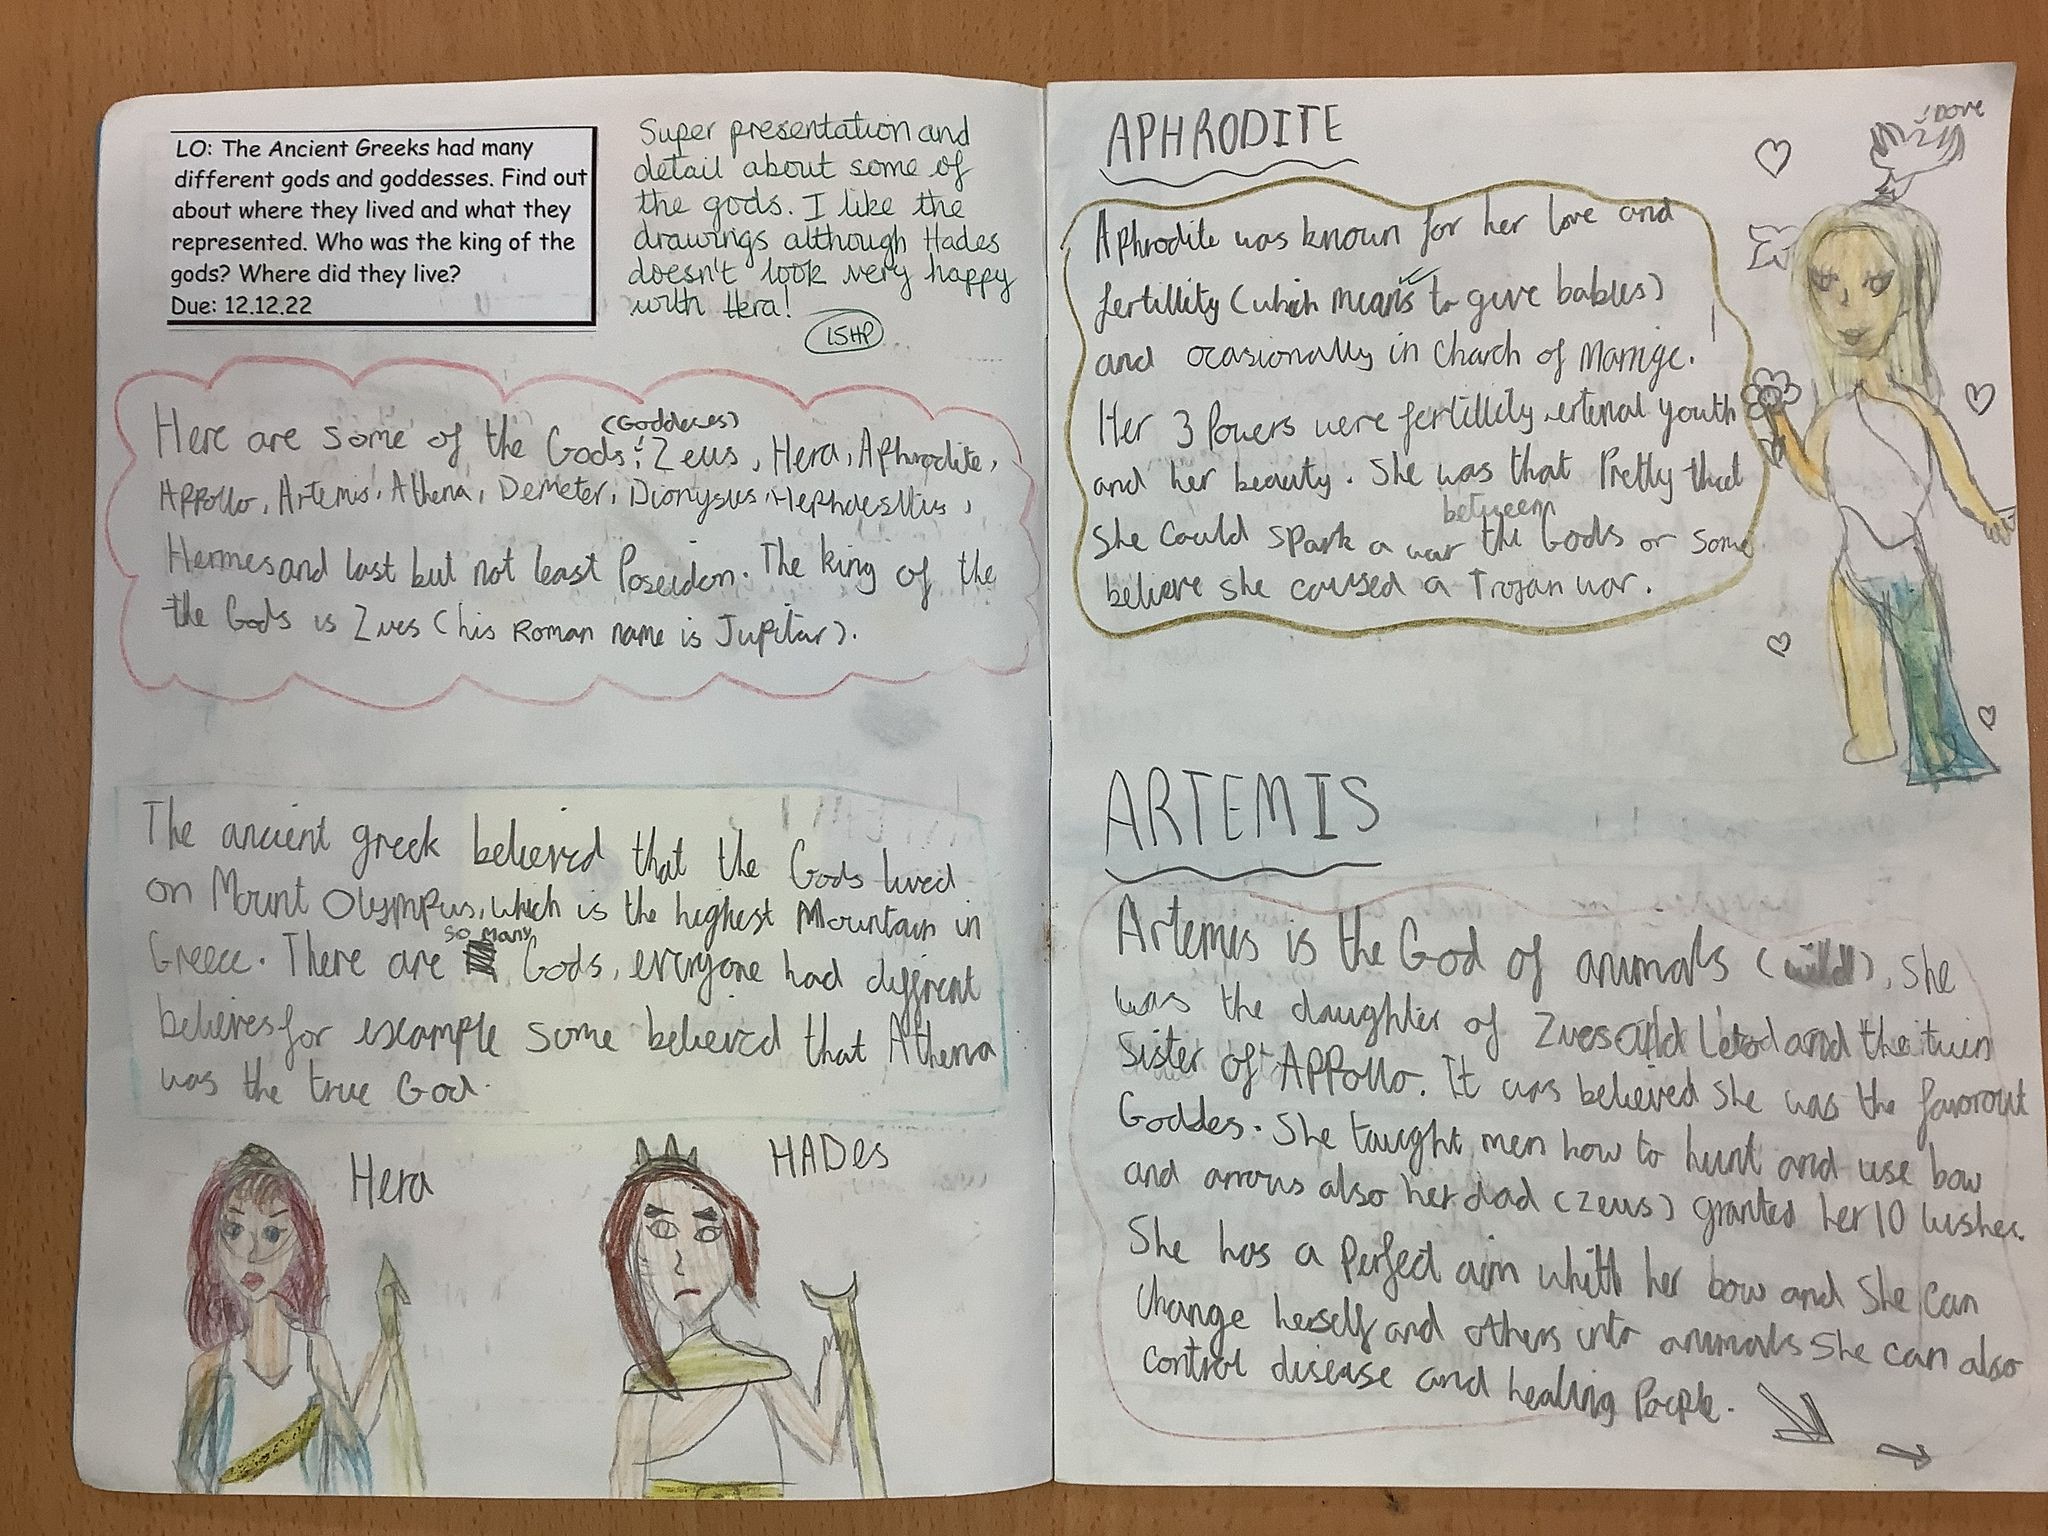 LO: The Ancient Greeks had many
different gods and goddesses. Find out
about where they lived and what they
represented. Who was the king of the
gods? Where did they live?
Due: 12.12.22
Super presentation and
detail about some of
the gods. I like the
drawings although Hades
doesn't look very happy
with Hera!
15HP
(Goddeses)
Here are some of the Gods: Zeus, Hera, Aphrodite,
APPollo, Artemis, Athena, Demeter, Dionysus, Hephaestlius,
Hermes and last but not least Poseidon. The king of the
the Gods is Zues (his Roman name is Jupitar).
The ancient greek believed that the Gods lived
on Mount Olympus, which is the highest Mountain in
so many
Greece. There are Gods, everyone had diffrent
believes for example some believed that Athena
was the true God.
Hera
HADes
APHRODITE
Dove
Aphrodite was known for her love and
fertillity (which means to give babies)
and ocasionally in charch of Marrige.
Her 3 Powers were fertillity, erternal youth
and her beauty. She was that Pretty that
between
She could spark a war the Gods or some
believe she caused a Trojan war.
ARTEMIS
Artemis is the God of animals (wild), She
was the daughter of Zues and and the twin
Sister of APPollo. It was believed She was the favorout
Goddes. She taught men how to hunt and use bow
and arrows also her dad (Zeus) granted her 10 wishes.
She has a Perfect aim whith her bow and She can
change herself and others into animals She can also
control disease and healing People.